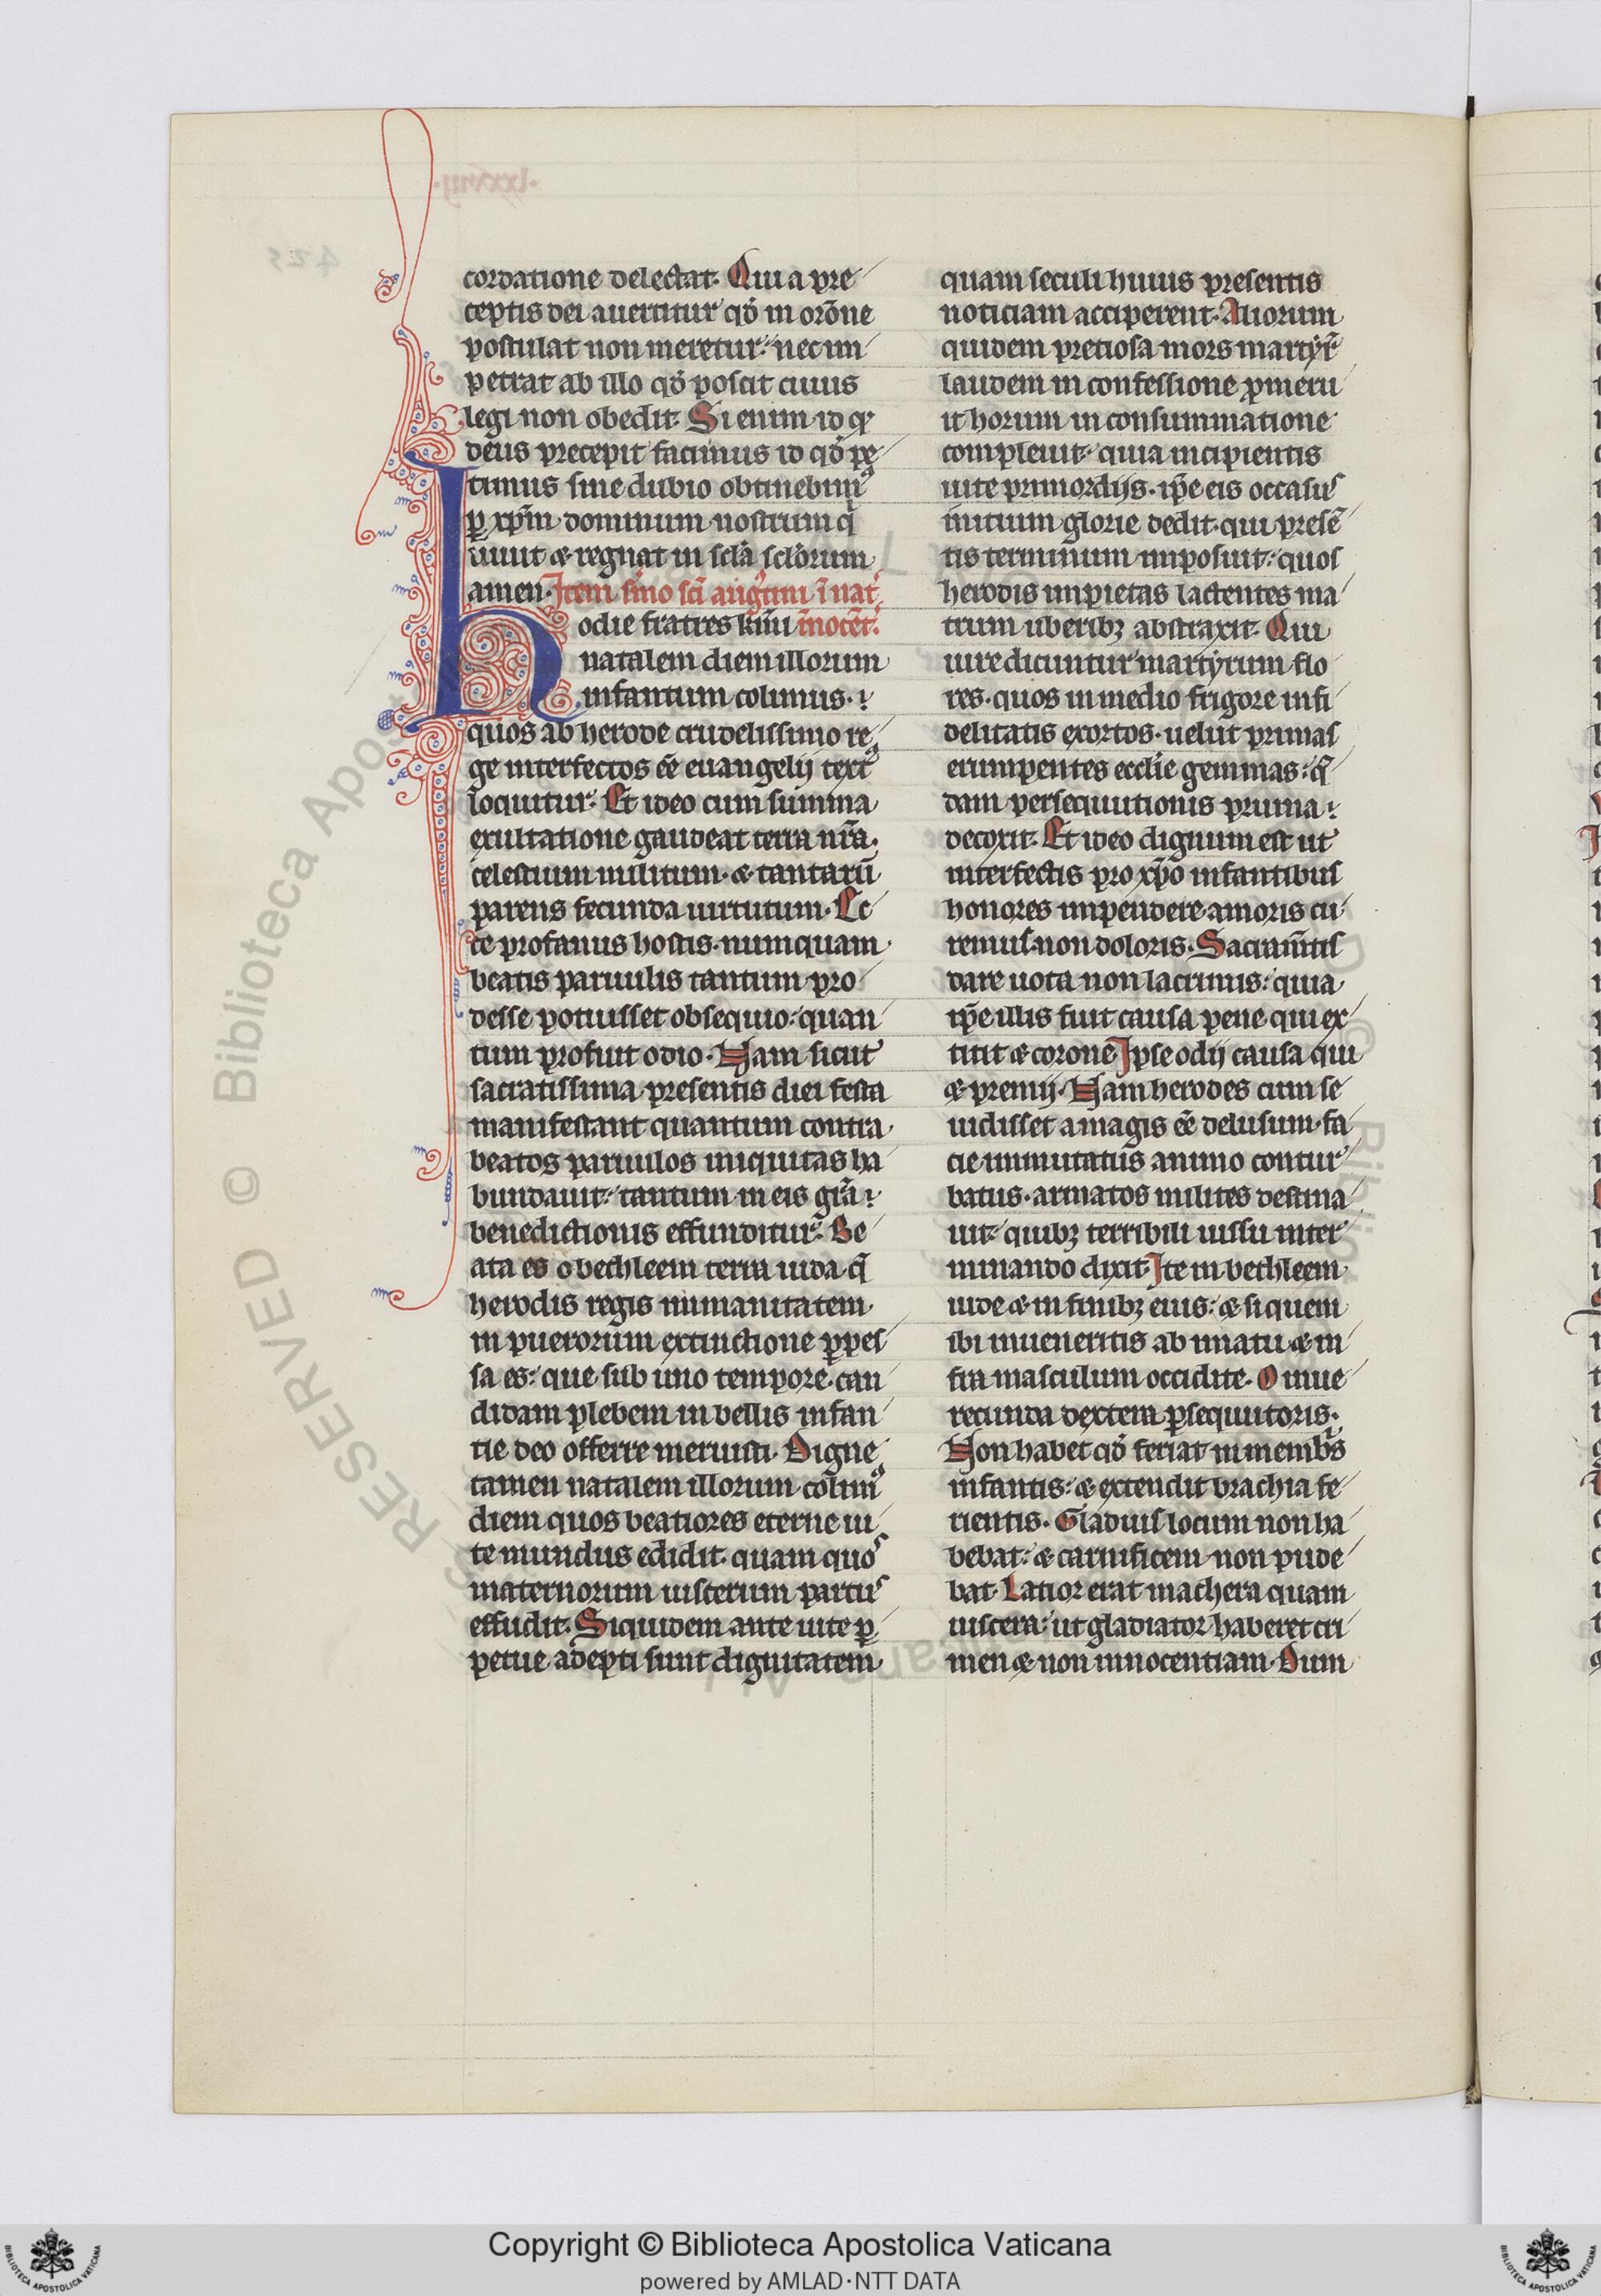 cordatione delectat. Qui a pre
ceptis dei auertitur qđ in orōne
postulat non meretur: nec im
petrat ab illo qđ poscit cuius
legi non obedit. Si enim id qđ
deus precepit facimus id qđ pe
timus sine dubio obtinebimꝰ
ꝑ xp̄m dominum nostrum qͥ
uiuit ⁊ regnat in scl̄a scl̄orum
amen. Item sͬmo sc̄i augͭini ī nat͛
odie fratres km̄i īnocēt͛.
natalem diem illorum
infantum colimus.
quos ab herode crudelissimo re
ge interfectos ēē euangelij textꝰ
loquitur. Et ideo cum summa
exultatione gaudeat terra nr̄a.
celestium militum. ⁊ tantarū
parens fecunda uirtutum. Ec
ce profanus hostis. numquam
beatis paruulis tantum pro
desse potuisset obsequio: quan
tum profuit odio. Nam sicut
sacratissima presentis diei festa
manifestant quantum contra
beatos paruulos iniquitas ha
bundauit: tantum in eis gr̄a
benedictionis effunditur. Be
ata es o bethleem terra iuda q̄
herodis regis inmanitatem
in puerorum extinctione ꝑpes
sa es: que sub uno tempore can
didam plebem inbellis infan
tie deo offerre meruisti. Digne
tamen natalem illorum colimꝰ
diem quos beatiores eterne ui
te mundus edidit. quam quos
maternorum uiscerum partus
effudit. Siquidem ante uite ꝑ
petue adepti sunt dignitatem
quam seculi huius presentis
noticiam acciperent. Aliorum
quidem pretiosa mors martyr̄
laudem in confessione ꝓmeru
it horum in consummatione
compleuit. quia incipientis
uite primordijs. ip̄e eis occasus
initium glorie dedit. qui presē
tis terminum imposuit: quos
herodis impietas lactentes ma
trum uberibꝫ abstraxit. Qui
iure dicuntur martyrum flo
res. quos in medio frigore infi
delitatis exortos. uelut primas
erumpentes eccl̄ie gemmas: qͣ
dam persequutionis pruina
decoxit. Et ideo dignum est ut
interfectis pro xp̄o infantibus
honores impendere amoris cu
remus. non doloris. Sacram̄tis
dare uota non lacrimis: quia
ip̄e illis fuit causa pene qui ex
titit ⁊ corone. Ipse odij causa qui
⁊ premij. Nam herodes cum se
uidisset a magis ēē delusum. fa
cie inmutatus animo contur
batus. armatos milites destina
uit. quibꝫ terribili iussu inter
minando dixit. Ite in bethleem
iude ⁊ in finibꝫ eius: ⁊ si quem
ibi inueneritis ab imatu ⁊ in
fra masculum occidite. O inue
recunda dextera ꝑsequutoris.
Non habet qđ feriat in membͥs
infantis: ⁊ extendit brachia fe
rientis. Gladius locum non ha
bebat: ⁊ carnificem non pude
bat. Latior erat machera quam
uiscera: ut gladiator haberet cri
men ⁊ non innocentiam. Dum
© Biblioteca Apostolica Vaticana
Copyright © Biblioteca Apostolica Vaticana
powered by AMLAD·NTT DATA